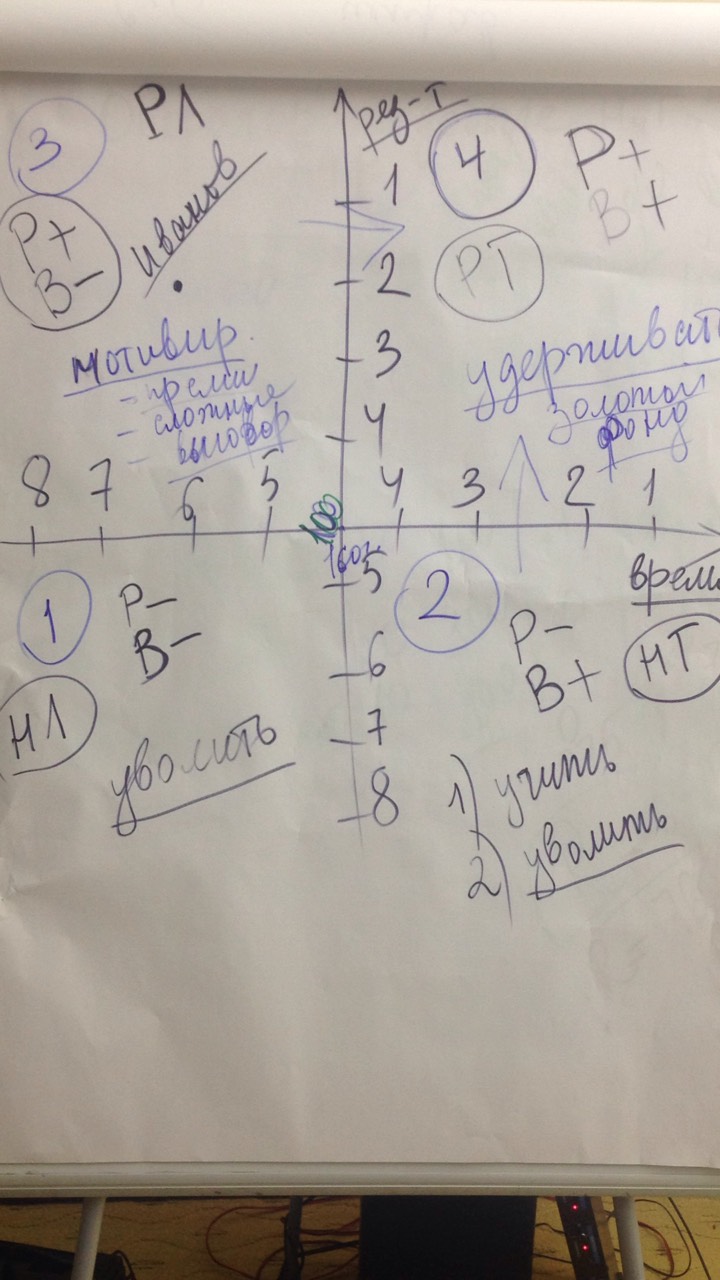 3
РЛ
рез-т
4
Р+
В+
1
Р+
В-
Иванов
РТ
2
мотивир.
- премии
- сложные
- выговор
3
удерживать
золотой
фонд
4
8 7 6 5 4 3 2 1
100
1
Р-
В-
5
2
время
Р-
В+
НТ
6
НЛ
уволить
7
8
1) учить
2) уволить